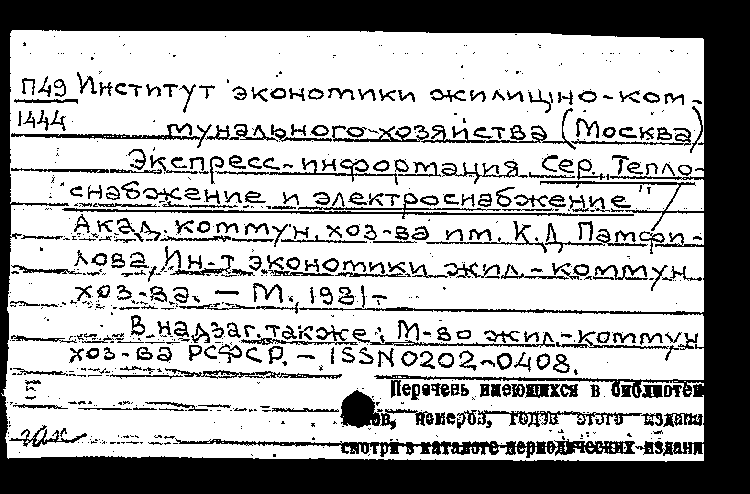 П49 Институт экономики жилищно-ком-
1444 мунального хозяйства (Москва)
Экспресс-информация. Сер. "Тепло-
снабжение и электроснабжение"
Акад. коммун. хоз-ва им. К.Д. Памфи-
лова, Ин-т экономики жил.-коммун.
хоз-ва. — М., 1981-
В надзаг. также: М-во жил.-коммун.
хоз-ва РСФСР. — ISSN 0202-0408.
Перечень имеющихся в библиотек
номеров, годов этого издани
смотри в каталоге периодических издани